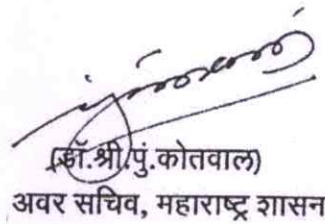 (डॉ.श्री.पुं.कोतवाल)
अवर सचिव, महाराष्ट्र शासन